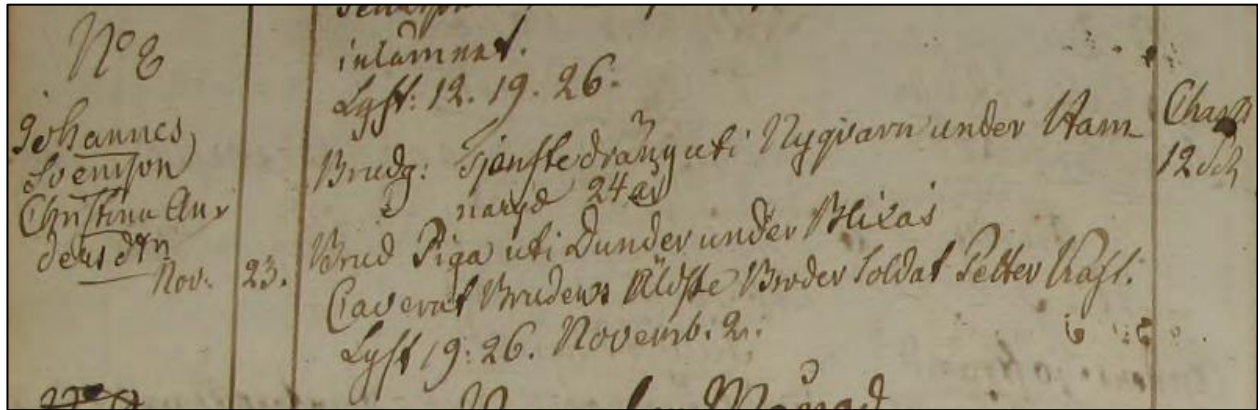 No 8
Johannes
Svenson
Christina An
ders dtr
Nov. 23.
inlämnat.
Lyst: 12. 19. 26.
Brudg: Tjenstedräng uti Nyqvarn under Ham
naryd 24 år
Brud Piga uti Dunder under Blixås
Caverat Brudens Äldste Broder Soldat Petter Rast.
Lyst 19. 26. Novemb. 2.
Månad
Charts
12 sch